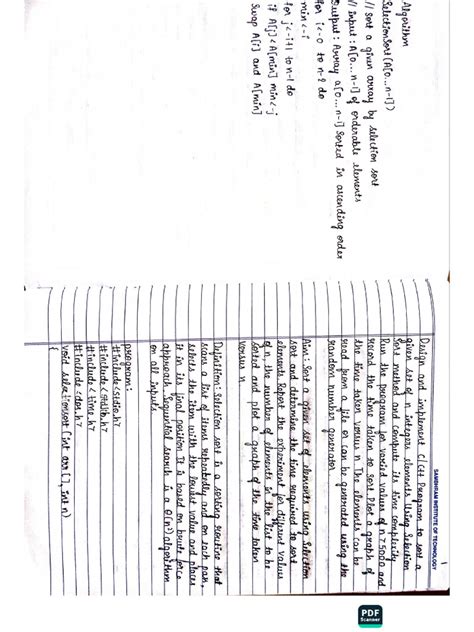 Algorithm
SelectionSort (A[0...n-1])
// Sort a given array by selection sort
// input : A[0...n-1] of orderable elements
Output : Array a[0...n-1] Sorted in ascending order
for i<-0 to n-2 do
min <-i
for j<-i+1 to n-1 do
if A[j] < A[min] min<-j
Swap A[i] and A[min]
1
SAMBHRAM INSTITUTE OF TECHNOLOGY
Design and implement C/C++ Program to sort a
given set of n integer elements Using Selection
Sort method and compute its time complexity
Run the program for varied values of n>5000 and
record the time taken to sort Plot a graph of
the time taken versus n The elements can be
read from a file or can be generated using the
random number generator
Aim: Sort a given set of elements using Selection
sort and determine the time required to sort
elements Repeat the experiment for different values
of n, the number of elements in the list to be
sorted and plot a graph of the time taken
versus n
Definition: Selection sort is a sorting routine that
scans a list of items repeatedly and on each pass,
selects the item with the lowest value and places
it in its final position It is based on brute force
approach Sequential search is a Θ(n²) algorithm
on all inputs
program:
#include<stdio.h>
#include<stdlib.h>
#include<time.h>
#include<dos.h>
void selectionsort (int arr[], int n)
{
PDF
Scanner